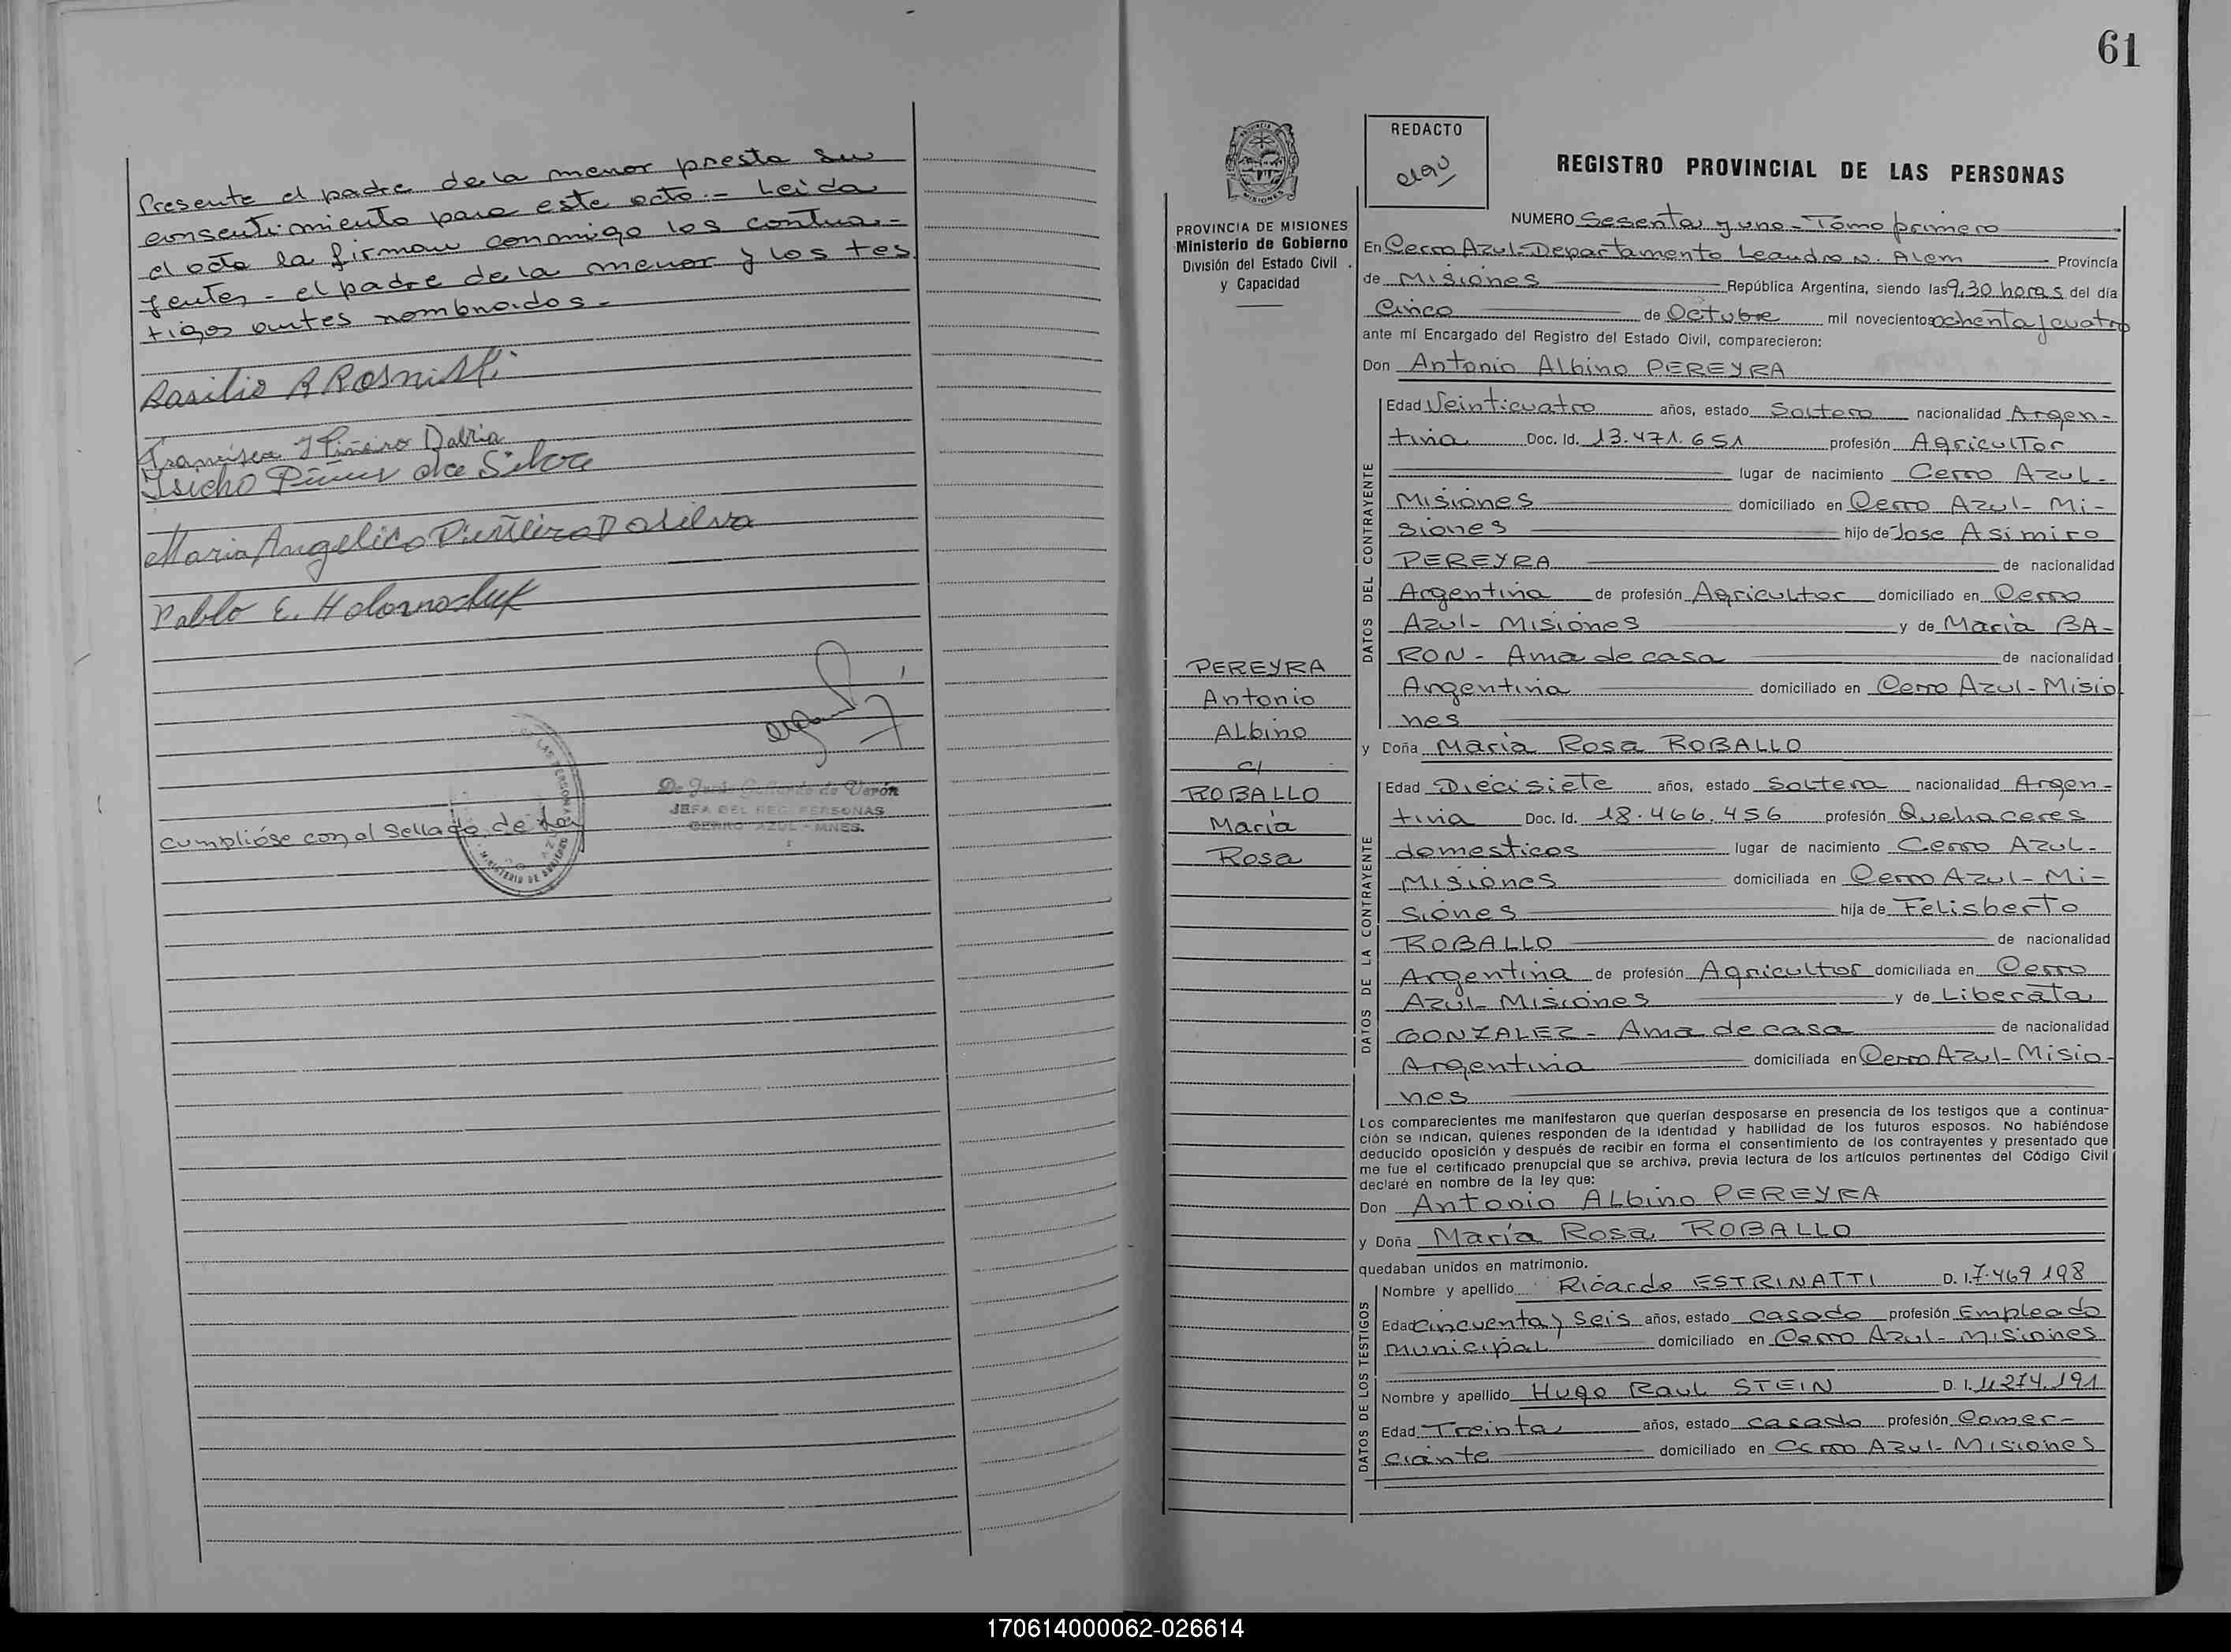 Presente el padre de la menor presta su
consentimiento para este acto.- Leida
el acta la firman conmigo los contra=
yentes - el padre de la menor y los tes
tigos antes nombrados -
Basilio R
Francisca Piñeiro
da Silva
Maria Angelica
Pablo E.
de Verón
JEFA DEL REG. PERSONAS
CERRO AZUL - MNES.
Cumplióse con el Sellado de Ley
61
REDACTO
REGISTRO PROVINCIAL DE LAS PERSONAS
NUMERO Sesenta y uno - Tomo primero
PROVINCIA DE MISIONES
Ministerio de Gobierno
División del Estado Civil
y Capacidad
En Cerro Azul-Departamento Leandro N. Alem Provincia
de Misiones República Argentina, siendo las 9,30 horas del día
Cinco de Octubre mil novecientos ochenta y cuatro
ante mí Encargado del Registro del Estado Civil, comparecieron:
Don Antonio Albino PEREYRA
DATOS DEL CONTRAYENTE
Edad Veinticuatro años, estado Soltero nacionalidad Argen-
tina Doc. Id. 13.471.651 profesión Agricultor
lugar de nacimiento Cerro Azul-
Misiones domiciliado en Cerro Azul- Mi-
siones hijo de Jose Asimiro
PEREYRA de nacionalidad
Argentina de profesión Agricultor domiciliado en Cerro
Azul- Misiones y de Maria BA-
RON - Ama de casa de nacionalidad
Argentina domiciliado en Cerro Azul-Misio
nes
PEREYRA
Antonio
Albino
c/
ROBALLO
María
Rosa
y Doña María Rosa ROBALLO
DATOS DE LA CONTRAYENTE
Edad Diecisiete años, estado Soltera nacionalidad Argen-
tina Doc. Id. 18.466.456 profesión Quehaceres
domesticos lugar de nacimiento Cerro Azul-
Misiones domiciliada en Cerro Azul-Mi-
siones hija de Felisberto
ROBALLO de nacionalidad
Argentina de profesión Agricultor domiciliada en Cerro
Azul-Misiones y de Liberata
GONZALEZ - Ama de casa de nacionalidad
Argentina domiciliada en Cerro Azul-Misio-
nes
Los comparecientes me manifestaron que querían desposarse en presencia de los testigos que a continua-
ción se indican, quienes responden de la identidad y habilidad de los futuros esposos. No habiéndose
deducido oposición y después de recibir en forma el consentimiento de los contrayentes y presentado que
me fue el certificado prenupcial que se archiva, previa lectura de los artículos pertinentes del Código Civil
declaré en nombre de la ley que:
Don Antonio Albino PEREYRA
y Doña María Rosa ROBALLO
quedaban unidos en matrimonio.
DATOS DE LOS TESTIGOS
Nombre y apellido Ricardo ESTRINATTI D. I. 7.469 198
Edad Cincuenta y Seis años, estado casado profesión Empleado
municipal domiciliado en Cerro Azul-Misiones
Nombre y apellido Hugo Raul STEIN D. I. 11.274.191
Edad Treinta años, estado casado profesión Comer-
ciante domiciliado en Cerro Azul-Misiones
170614000062-026614